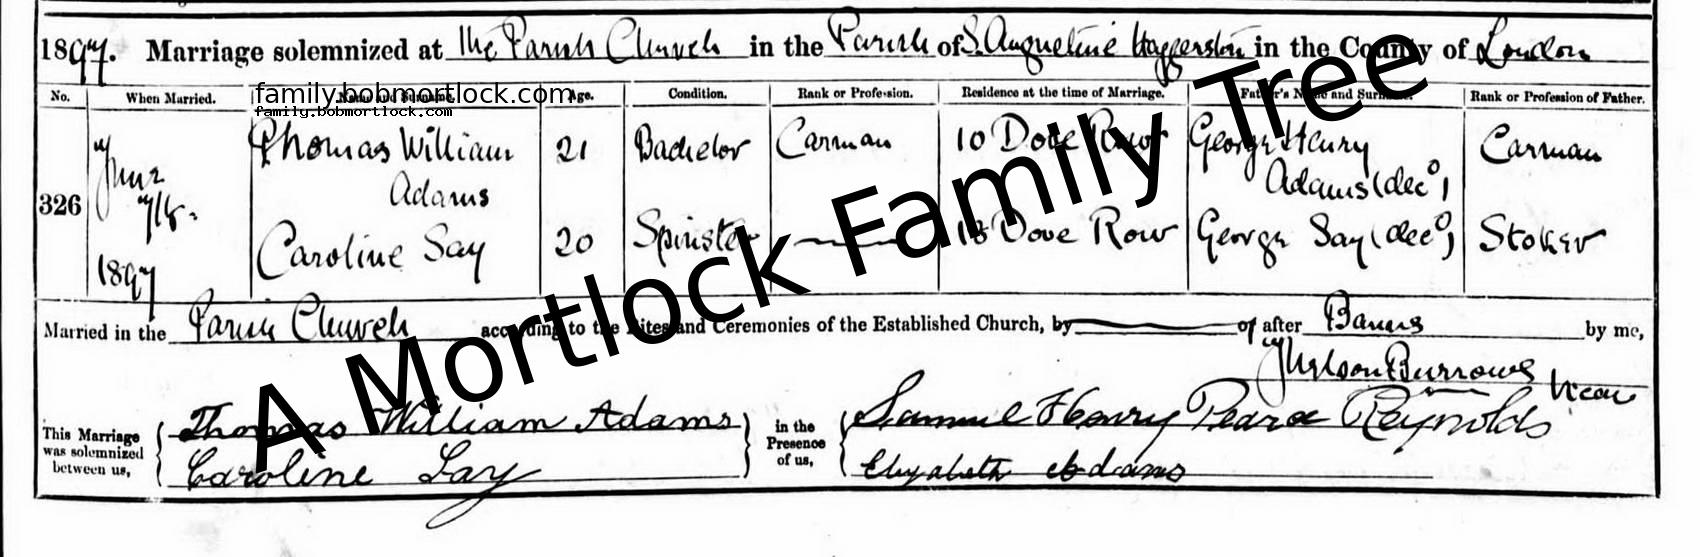 1897. Marriage solemnized at The Parish Church in the Parish of S. Augustine Haggerston in the County of London
No. When Married. Name and Surname. Age. Condition. Rank or Profession. Residence at the time of Marriage. Father's Name and Surname. Rank or Profession of Father.
family.bobmortlock.com
family.bobmortlock.com
326 June 7th 1897
Thomas William Adams 21 Bachelor Carman 10 Dove Row George Henry Adams (decd) Carman
Caroline Say 20 Spinster — 18 Dove Row George Say (decd) Stoker
Married in the Parish Church according to the Rites and Ceremonies of the Established Church, by or after Banns by me,
J Nelson Burrows Vicar
This Marriage was solemnized between us, Thomas William Adams Caroline Say in the Presence of us, Samuel Henry Reynolds Elizabeth Adams
A Mortlock Family Tree